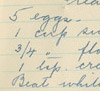 5 eggs.
1 cup su
3/4 " flo
1 tsp. cre
Beat white